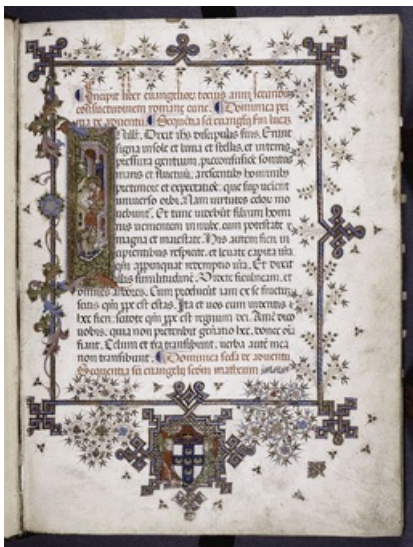 Incipit liber euangelioꝝ tocius anni secundū
consuetudinem romane curie. Dominica pri
ma de aduentu. Sequētia sci euangelij scd'm lucā
In illo t. Dixit ihs discipulis suis. Erunt
signa in sole et luna et stellis, et in terris
pressura gentium, pre confusione sonitus
maris et fluctuū, arescentibȝ hominibȝ
pre timore et expectatiōe, que supuenient
uniuerso orbi. Nam uirtutes celoꝝ mo
uebunt̄. Et tunc uidebūt filium homi
nis uenientem in nube, cum potestate
magna et maiestate. His autem fieri in
cipientibus respicite, et leuate capita ura
qm̄ appinquat redemptio ura. Et dixit
illis similitudinē. Videte ficulneam, et
omnes arbores. Cum producūt iam ex se fructū
scitis qm̄ ppe est estas. Ita et uos cum uideritis
hec fieri, scitote qm̄ ppe est regnum dei. Amē dico
uobis, quia non preteribit gnātio hec, donec oīa
fiant. Celum et t̄ra transibunt, uerba autē mea
non transibunt. Dominica scda de aduentu.
Sequentia sci euangelij scdm matheum